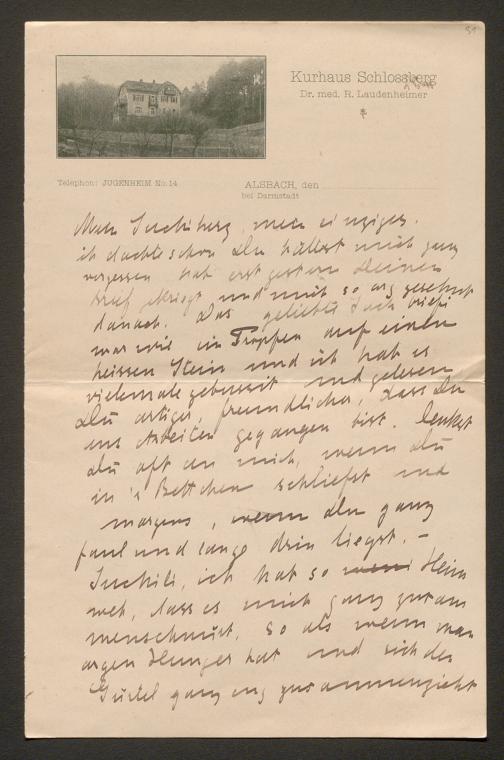 Kurhaus Schlossberg
Dr. med. R. Laudenheimer
Telephon: JUGENHEIM No. 14
ALSBACH, den
bei Darmstadt
mein einziger.
ich dachte schon Du hättest mich ganz
vergessen hat erst gestern Deinen
Brief gekriegt und mich so arg gesehnt
danach. Das geliebte
war wie ein Tropfen auf einen
heissen Stein und ich hab es
vielemale und gelesen
Du artiger, freundlicher, dass Du
ans Arbeiten gegangen bist. Denkst
Du oft an mich, wenn Du
in's Bettchen schliefst und
morgens, wenn Du ganz
faul und lange drin liegst. –
ich hat so Heim
weh, dass es mich ganz zusam
menschnürt. So als wenn man
argen Hunger hat und sich den
Gürtel ganz eng zusammenzieht